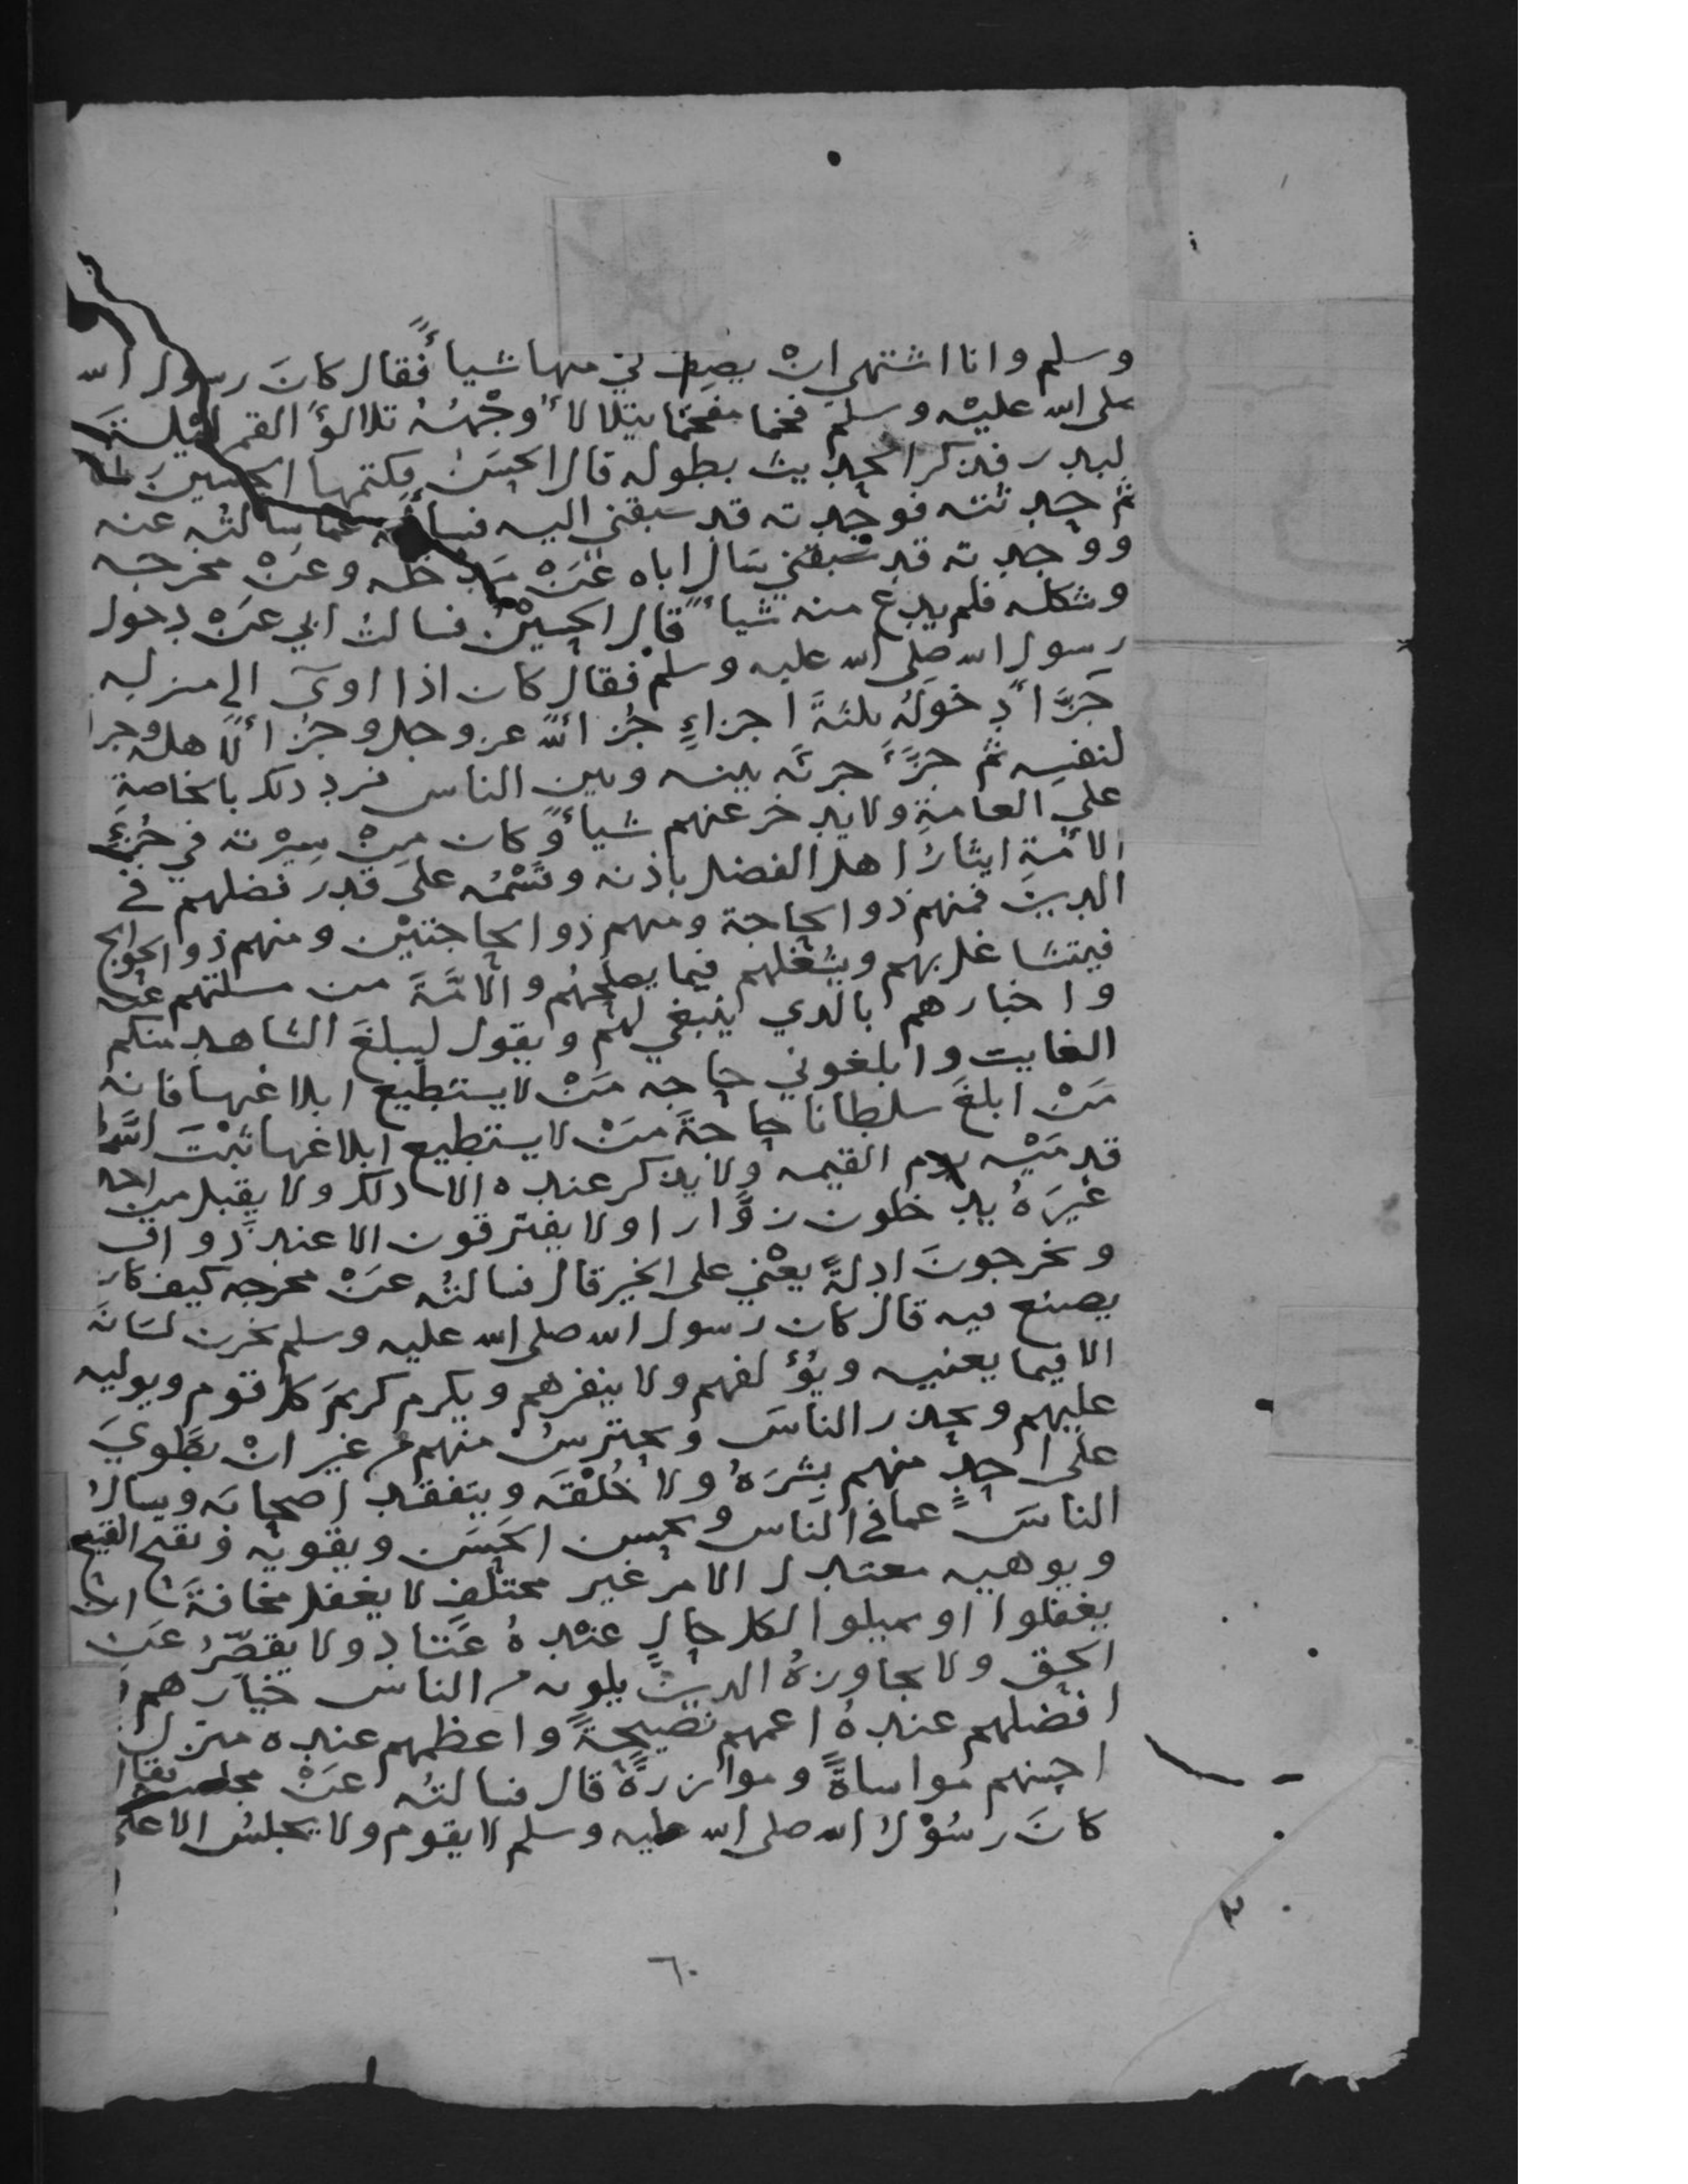 وسلم وانا اشتهي انْ يصِف لي منها شيأً فقال كانَ رسول الله
صلى الله عليْه وسلمَ فخما مفخمًا يتلالأ وجْهُهُ تلالؤَ القمر ليْلَةَ
لبدر فذكر الحديث بطوله قال الحسَنُ فكتمها الحسين
ثم حدثته فوجدته قد سبقني اليه فسأله عما سالتُه عنه
ووجدته قد سَبقني سَال اباه عَنْ مَدخله وعَنْ مخرجه
وشكله فلم يدع منه شيأً قال الحسيْنُ فسالتُ ابي عَنْ دخول
رسول الله صلى الله عليه وسلم فقال كان اذا اوىَ الى منزله
جَزَّأ دخولَهُ ثلثةَ اجزاءٍ جُزأً لله عز وجل وجُزأً لاهله وجزا
لنفسِه ثم جزَّأَ جزئَه بينه وبين الناس فرد ذلك بالخاصةِ
على العامةِ ولا يدخر عنهم شيأً وكان مِنْ سِيْرته في جُزءِ
الأمةِ ايثارُ اهل الفضل باذنه وقَسْمُه على قدر فضلهم في
الدين فمنهم ذو الحاجة ومنهم ذو الحاجتيْن ومنهم ذو الحوايج
فيتشاغل بهم ويشغلهم فيما يصلحهُم والامَّةَ من مسلتهم عنه
واخبارهم بالذي ينبغي لهم ويقول ليبلغَ الشاهد منكم
الغايب وابلغوني حاجه مَنْ لا يستطيع ابلاغها فانه
مَنْ ابلغَ سلطانا حاجةَ مَنْ لا يستطيع ابلاغها ثبْتَ اللهُ
قدمَيْه يوم القيمه ولا يذكر عنده الا ذلك ولا يقبل من احد
غيرَهُ يدخلون روَّارا ولا يفترقون الا عند ذَواق
ويخرجونَ ادلةً يعْني على الخير قال فسالتُه عَنْ مخرجه كيف كان
يصنع فيه قال كان رسول الله صلى الله عليه وسلم يخزن لسَانَه
الا فيما يعنيه ويُؤلفهم ولا ينفرهم ويكرم كريمَ كل قوم ويوليه
عليهم ويحذر الناسَ ويحترسُ منهم من غير انْ يطويَ
على احدٍ منهم بِشرَهُ ولا خُلْقَه ويتفقد اصحابَه ويسالُ
الناسَ عما في الناس ويحسن الحَسَن ويقويه ويقبح القبيح
ويوهيه معتدل الامر غير مختلفٍ لا يغفل مخافةَ ان
يغفلوا او يميلوا لكل حالٍ عنْدهُ عَتاد ولا يقصّرُ عَن
الحق ولا يجاوزهُ الذين يلونه من الناس خيارهم
افضلهم عندهُ اعمهم نصيحةً واعظمهم عنده منزل
احسنهم مُواساةً وموازرةً قال فسالتُه عَنْ مجلسه فقال
كانَ رسُوْلُ الله صلى الله عليه وسلم لا يقوم ولا يجلسُ الا على
٦٠